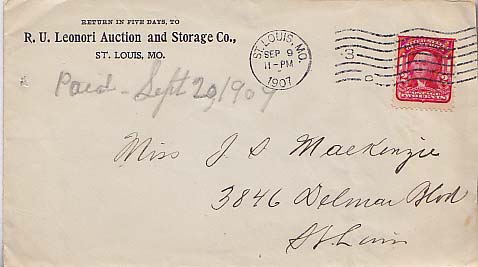 RETURN IN FIVE DAYS, TO
R. U. Leonori Auction and Storage Co.,
ST. LOUIS, MO.
ST. LOUIS, MO.
SEP 9
11-PM
1907
Paid - Sept 20, 1907
Miss J S MacKenzie
3846 Delmar Blvd
St. Louis